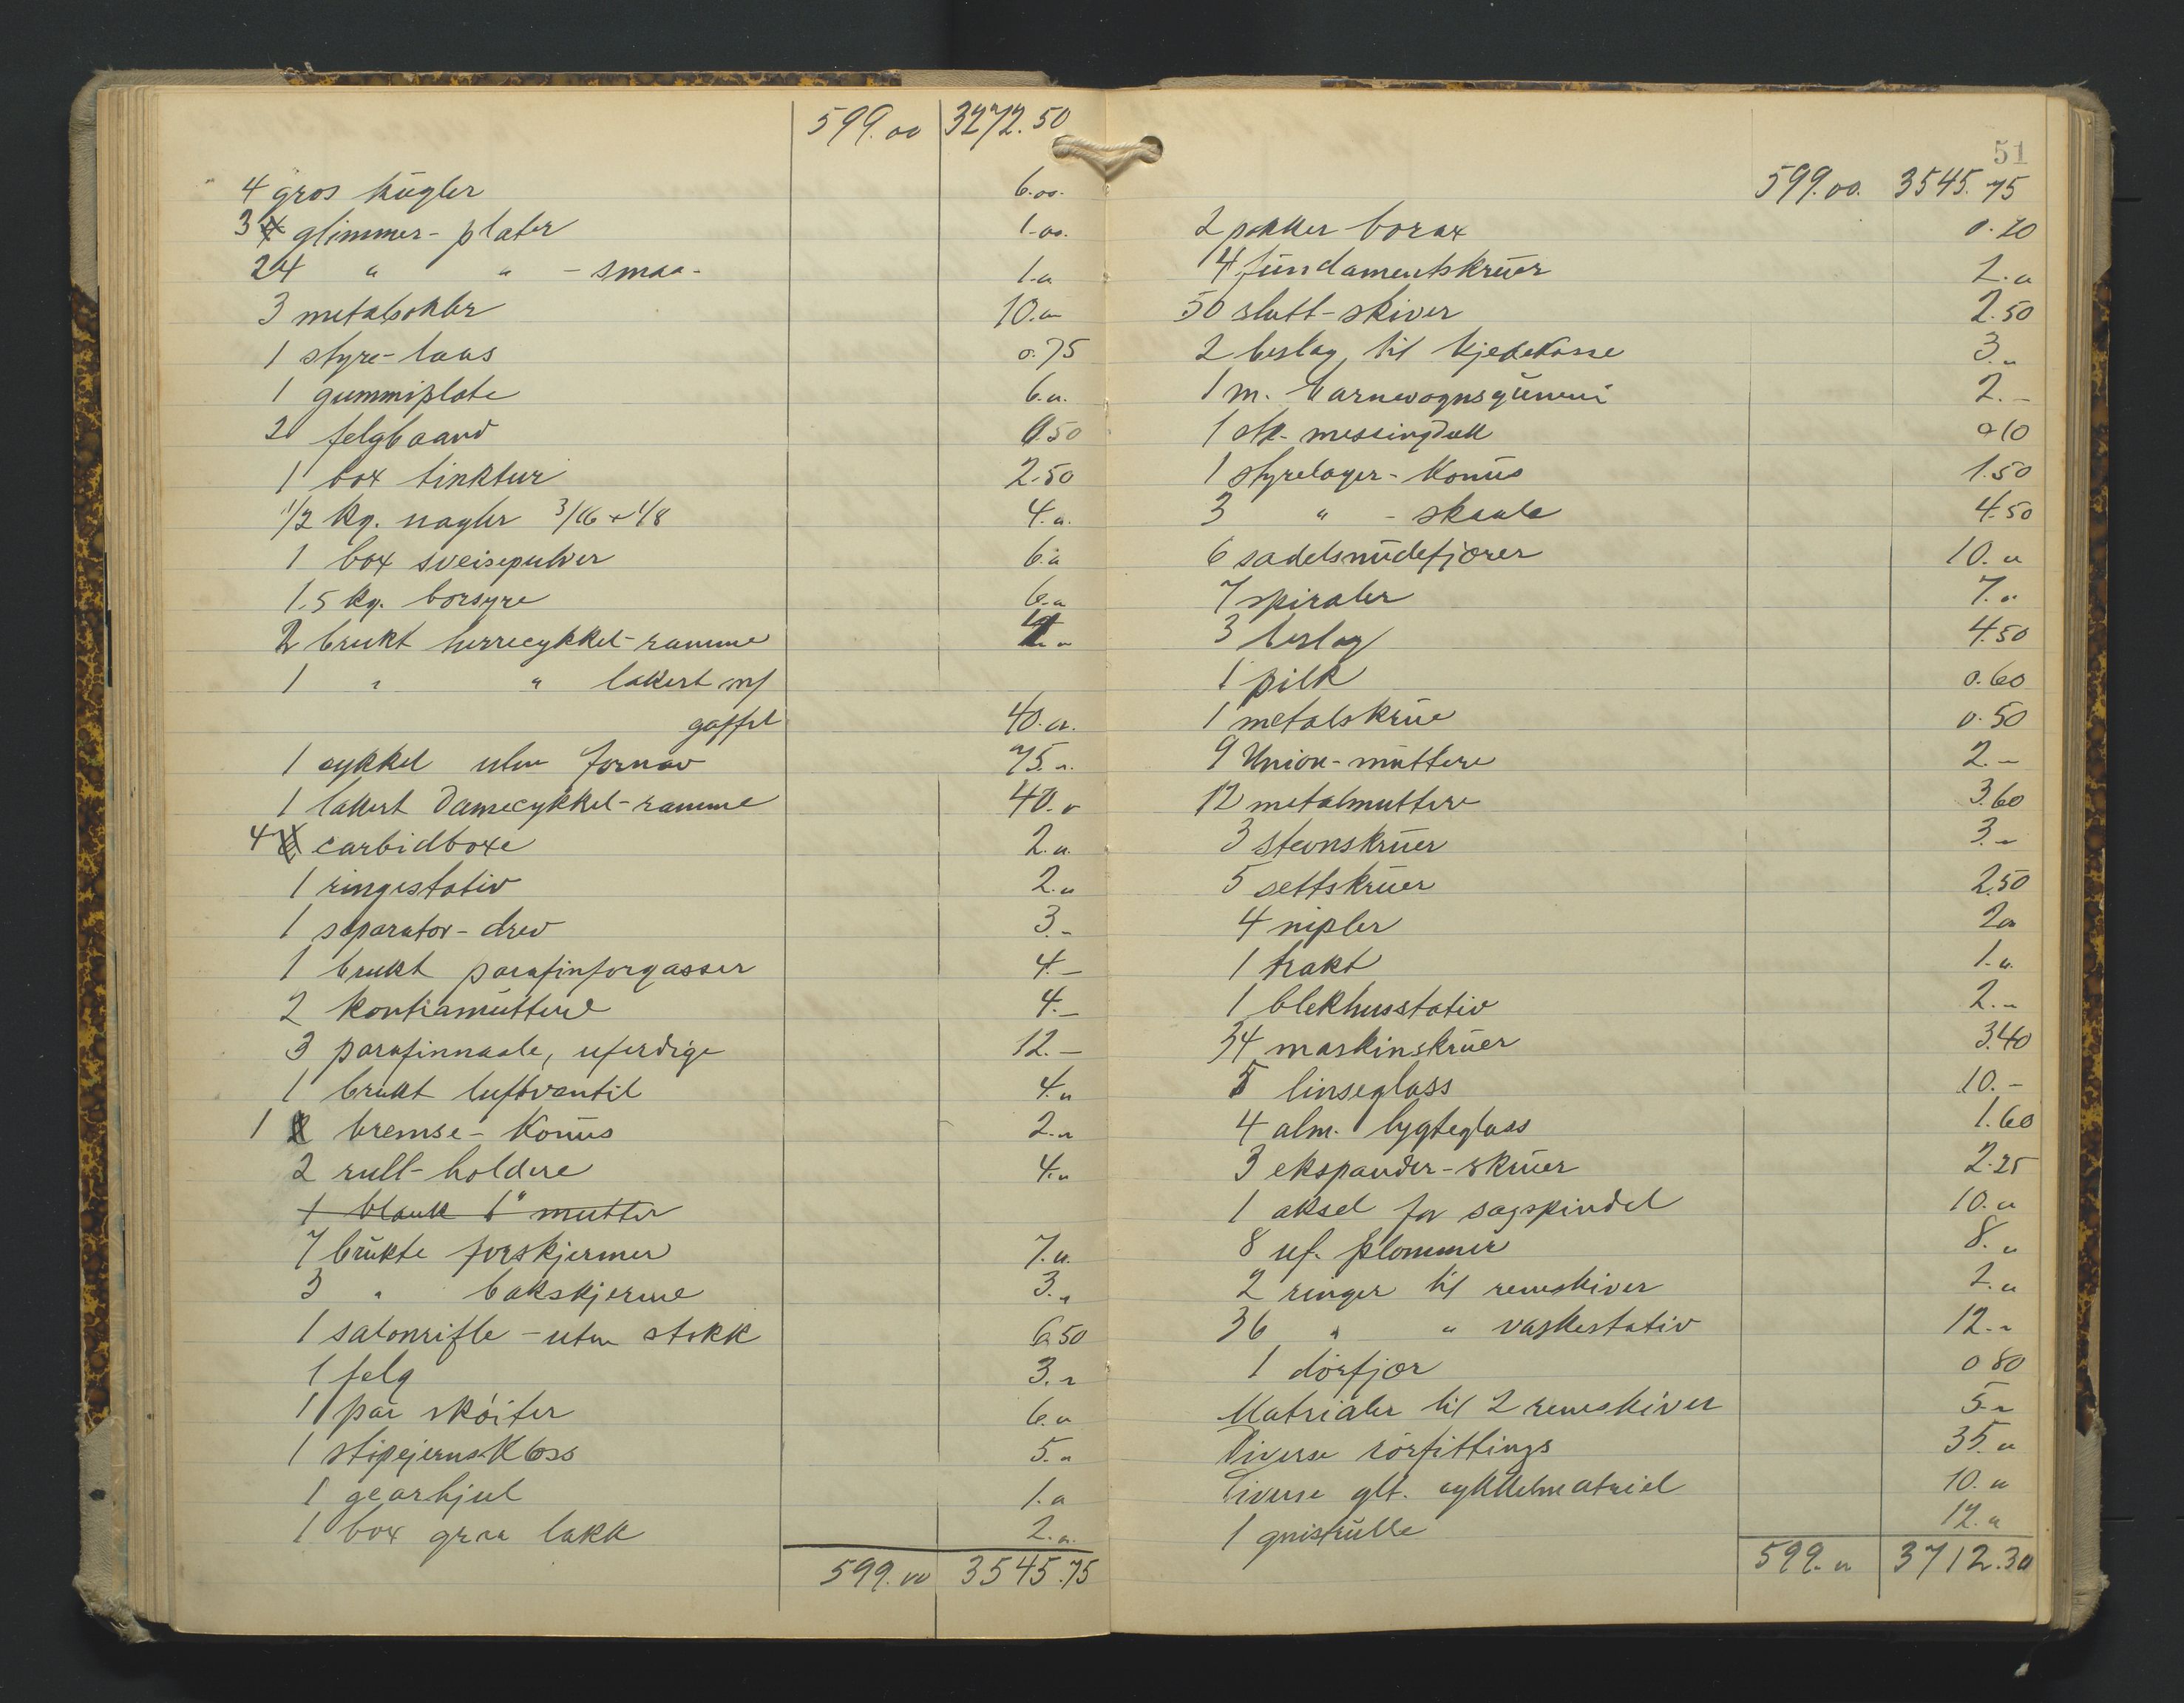 599.00 3272.50
4 gros kügler 6.00.
3 glimmer-plater 1.00.
24 " " - smaa- 1.„
3 metalsokler 10.„
1 styre-laas 0.75
1 gummiplate 6.„
2 felgbaand 0.50
1 box tinktur 2.50
1/2 kg. nagler 3/16 + 1/8 4.„
1 box sveisepulver 6.„
1.5 kg. borsyre 6.„
2 brukt herrecykkel-ramme
1 " " lakert m/
gaffel 40.„
1 cykkel uten fornav 75.„
1 lakert Damecykkel-ramme 40.„
4 carbidboxe 2.„
1 ringestativ 2.„
1 separator-drev 3.-
1 brukt parafinforgasser 4.-
2 kontramüttere 4.-
3 parafinnaale, uferdige 12.-
1 brukt luftventil 4.„
1 bremse-Konüs 2.„
2 rull-holdere 4.„
1 blank 1" mutter
7 brükte forskjermer 7.„
3 " bakskjerme 3.„
1 salonrifle - uten stokk 6.50
1 felg 3.„
1 par skøiter 6.„
1 støpejerns-Kloss 5.„
1 gearhjul 1.„
1 box graa lakk 2.„
599.00 3545.75
51
599.00. 3545.75
2 pakker borax 0.20
4 fündamentskrüer 2.„
50 slutt-skiver 2.50
2 beslag til kjedekasse 3.„
1 m. barnevognsgümmi 2.-
1 stk. messingduk 0.10
1 styrelager-Konüs 1.50
3 " - skaale 4.50
6 sadelsnüdefjærer 10.„
7 spiraler 7.„
3 beslag 4.50
1 pilk 0.60
1 metalskrüe 0.50
9 Union-müttere 2.-
12 metalmuttere 3.60
3 stevnskrüer 3.-
5 settskrüer 2.50
4 nipler 2„
1 trakt 1.„
1 blekhusstativ 2.-
34 maskinskrüer 3.40
5 linseglass 10.-
4 alm. lygteglass 1.60
3 ekspander-skrüer 2.25
1 aksel for sagspindel 10.„
8 uf. plommer 8.„
2 ringer til remskiver 2.„
36 " " vaskestativ 12.-
1 dörfjær 0 80
Matrialer til 2 remskiver 5.-
Diverse rörfittings 35.„
Diverse glt. cykkelmatriel 10.„
1 gnistrülle 12.„
599.„ 3712.30